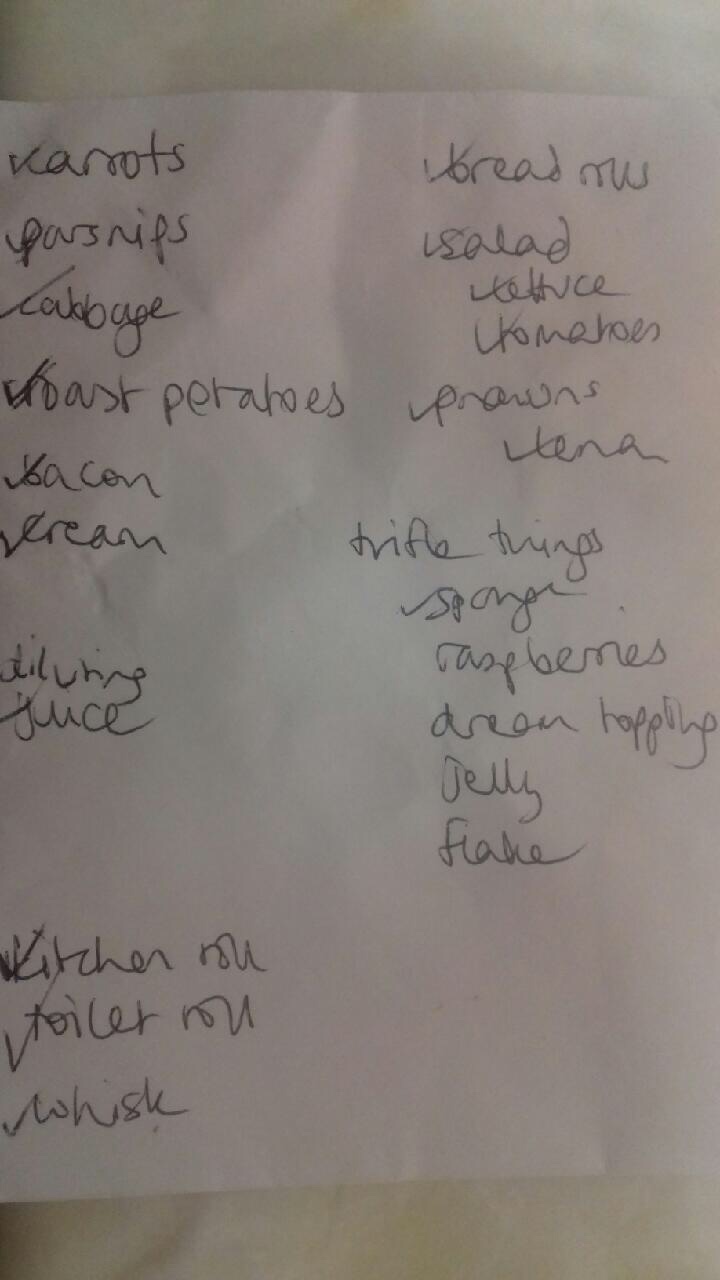 carrots
parsnips
cabbage
roast potatoes
bacon
cream
diluting
juice
kitchen roll
toilet roll
whisk
bread rolls
salad
lettuce
tomatoes
prawns
tena
trifle things
sponge
raspberries
dream topping
Jelly
flake